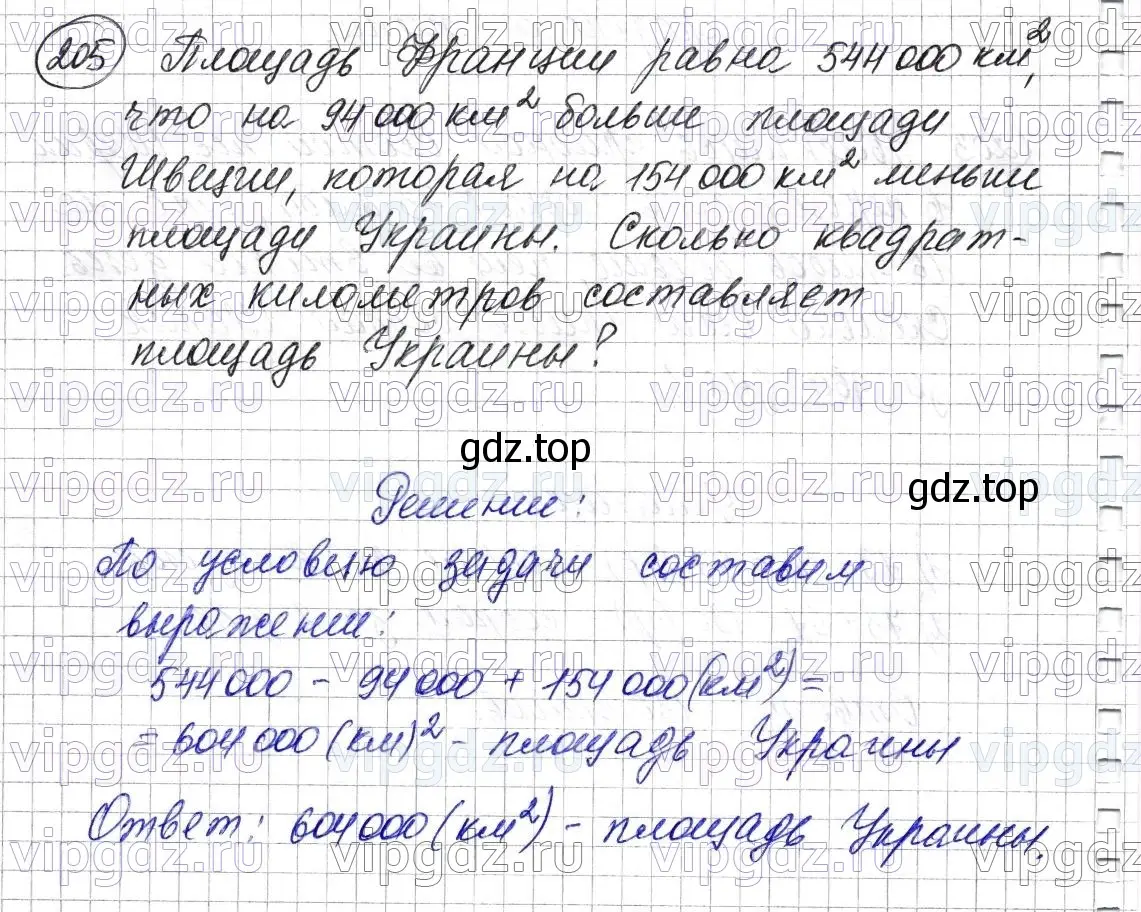 205 Площадь Франции равна 544 000 км²,
что на 94 000 км² больше площади
Швеции, которая на 154 000 км² меньше
площади Украины. Сколько квадрат-
ных километров составляет
площадь Украины?
gdz.top
gdz.top
Решение:
По условию задачи составим
выражение:
544 000 - 94 000 + 154 000 (км²) =
= 604 000 (км)² - площадь Украины
Ответ: 604 000 (км²) - площадь Украины.